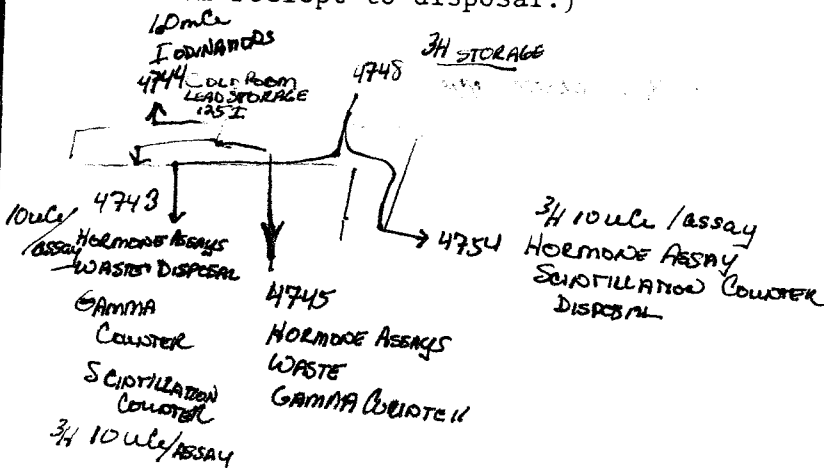 reciept to disposal.)
10mCi
IODINATIONS
4744 COLD ROOM
LEAD STORAGE
125 I
4748
3H STORAGE
4743
10uCi
/assay
HORMONE ASSAYS
WASTE DISPOSAL
GAMMA
COUNTER
SCINTILLATION
COUNTER
3H 10uCi/ASSAY
4745
HORMONE ASSAYS
WASTE
GAMMA COUNTER
4754
3H 10uCi/assay
HORMONE ASSAY
SCINTILLATION COUNTER
DISPOSAL